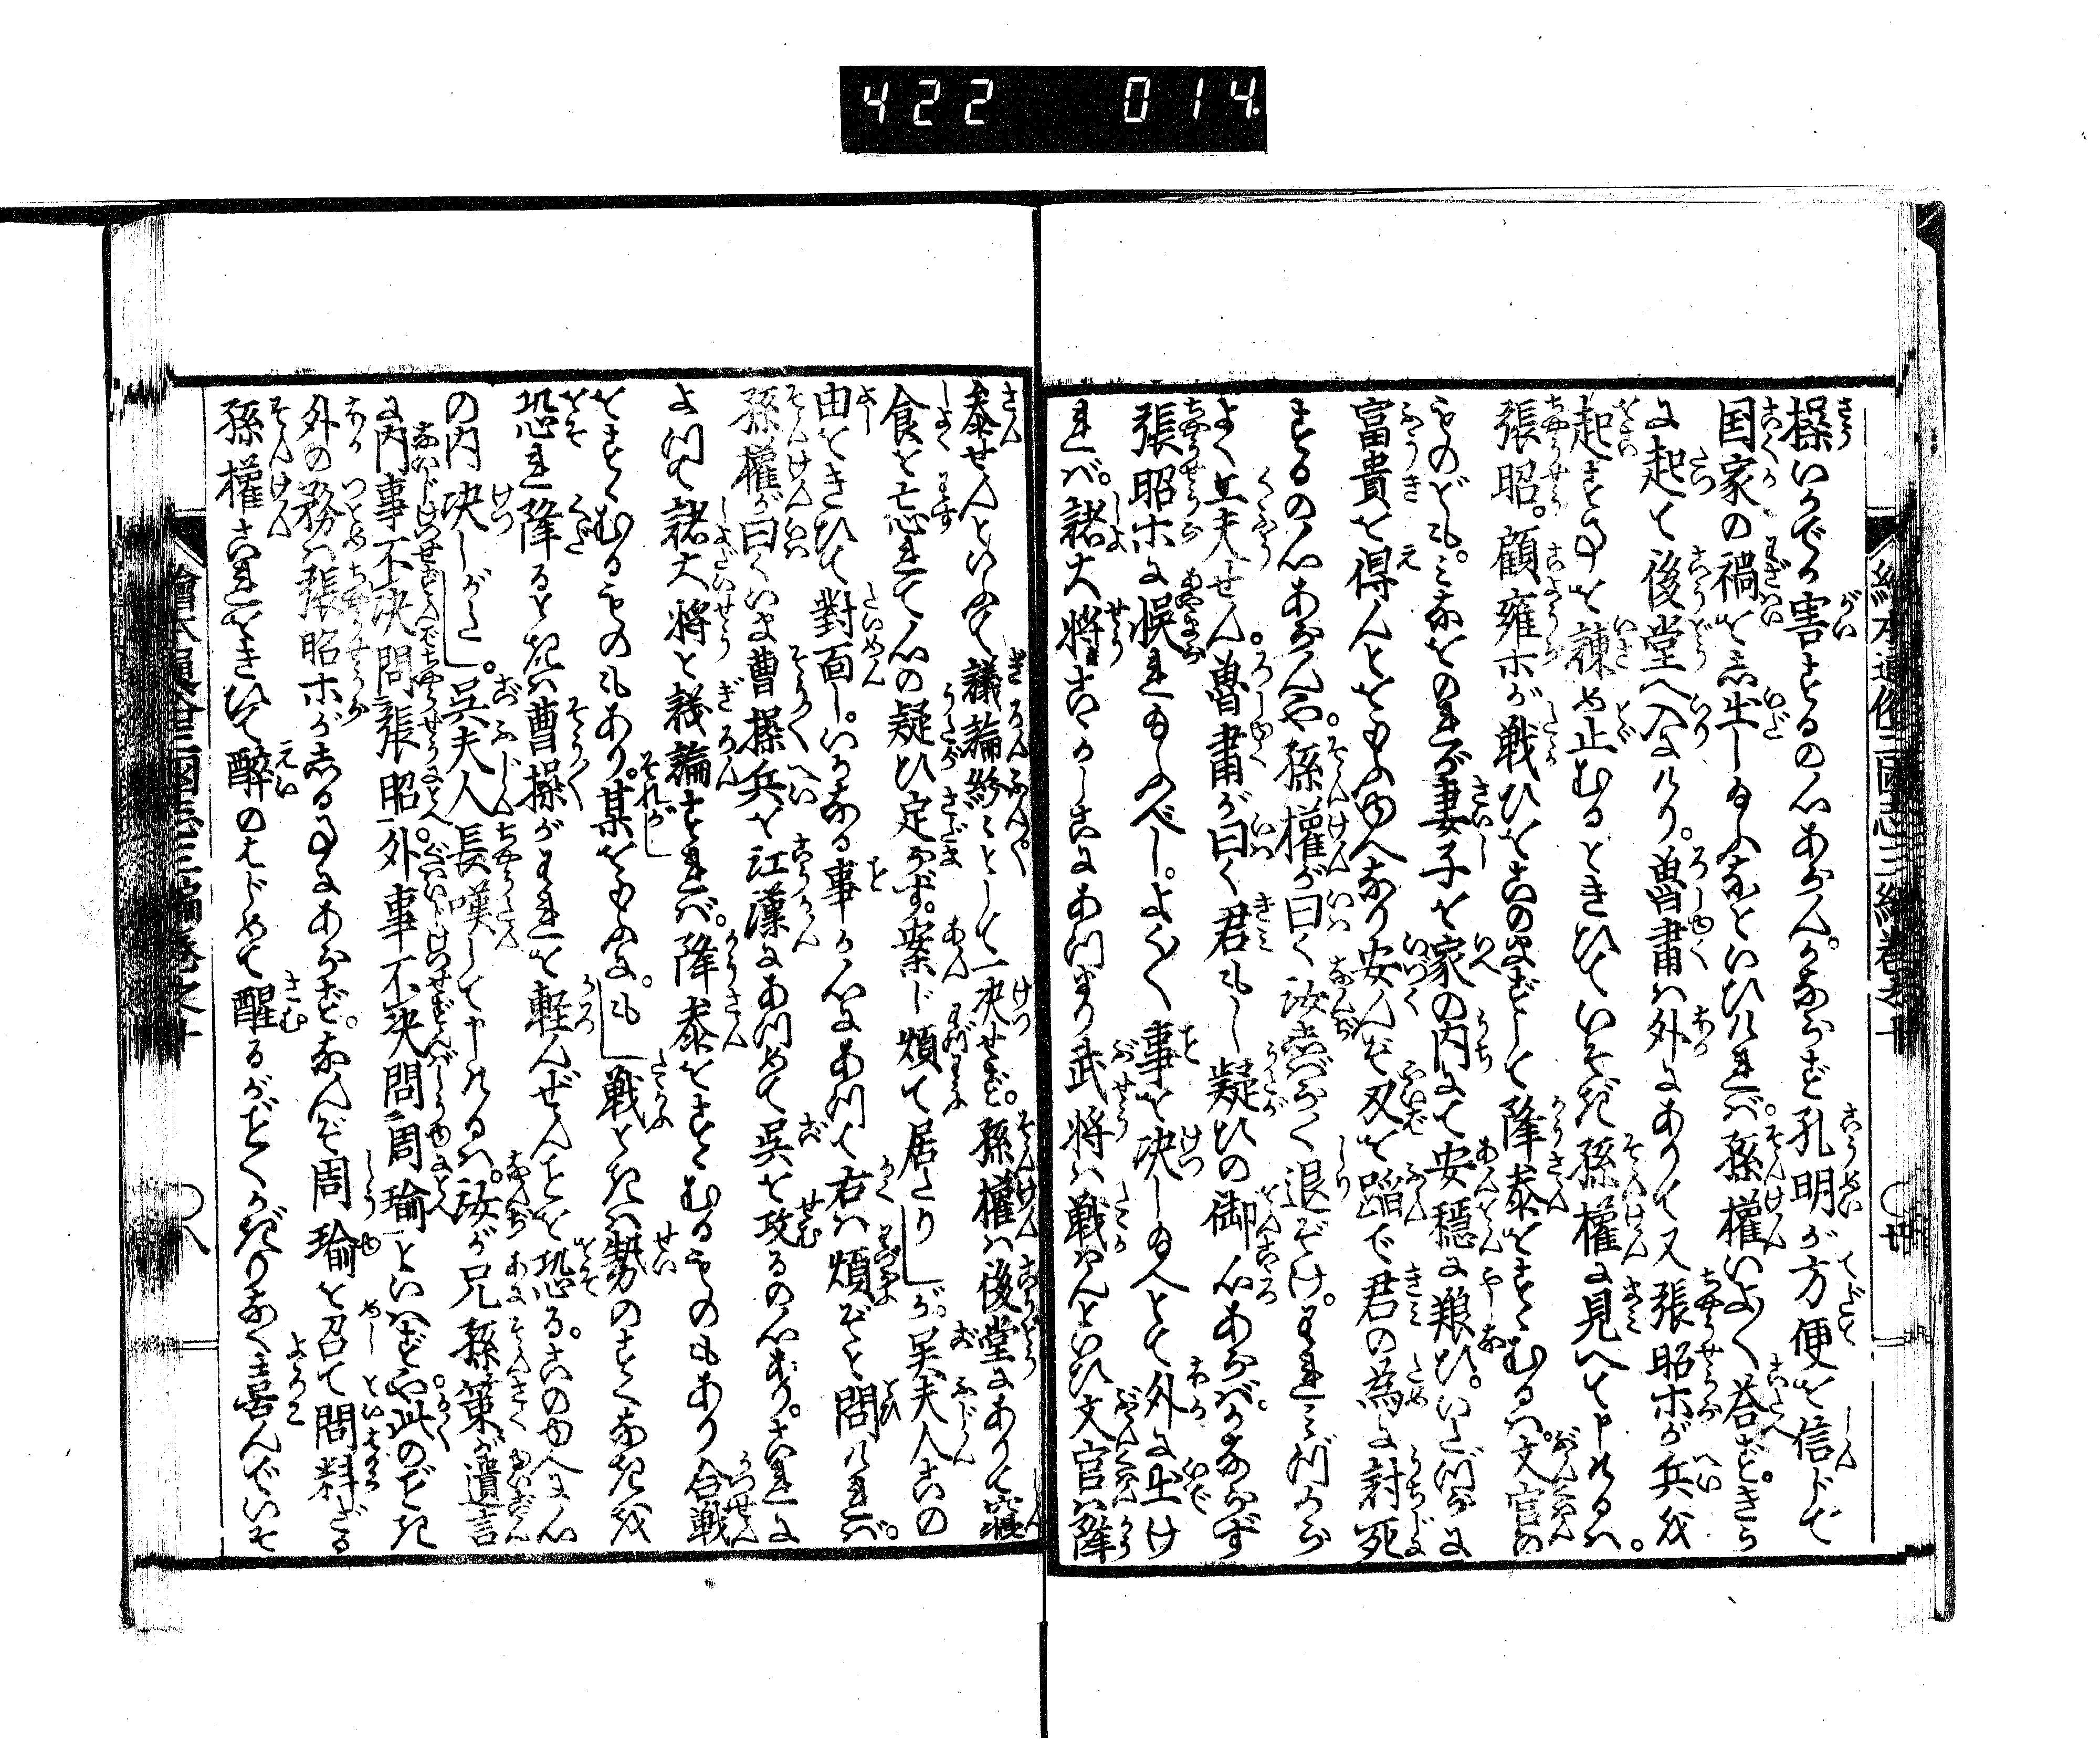 422 014
繪本通俗三國志三編巻之十
操いかでか害するの心あらん。かならず孔明が方便を信じて
国家の禍を惹出し給ふなといひければ。孫權いよ〱答ず。きら
に起て後堂へ入にけり。魯肅は外にありて又張昭ホが兵を
起す事を諌め止むるときひていそぎ孫權に見へて申けるハ。
張昭。顧雍ホが戦ひをこのまずして降参をすゝむるハ。文官の
ものども。みなをのれが妻子を家の内にて安穏に狼ひ。いたづらに
富貴を得んとをもふゆへなり安んぞ刃を蹈で君の為に討死
するの心あらんや。孫權が曰く汝しばらく退ぞけ。われみづから
よく工夫せん。魯肅が曰く君もし疑ひの御心あらバ。かならず
張昭ホに悞れ給ふべし。よく〱事を決し給へとて外に出け
れバ。諸大将こゝかしこにあつまり武将ハ戦はんといひ文官ハ降
参せんといふて議論紛〻として一决せず。孫權ハ後堂にありて寝
食を忘れて心の疑ひ定らず。案じ煩て居たりしが。呉夫人この
由をきひて對面し。いかなる事か心にあつて右ハ煩ぞと問けれバ。
孫權が曰くいま曹操兵を江漢にあつめて呉を攻るの心あり。これに
よつて諸大将と議論すれバ。降参をすゝむるものもあり合戦
をすゝむるものもあり。某をもふに。もし戦ときハ勢のすくなきを
恐れ降るときハ曹操がわれを軽んぜんことを恐る。このゆへに心
の内决しがたし。呉夫人長嘆して申けるハ。汝が兄孫策が遺言
に内事不决問張昭。外事不决問周瑜といはずや。此のごとき
外の務ハ張昭ホがしる事にあらず。なんぞ周瑜を召て問料ざる
孫權これをきひて醉のはじめて醒るがごとくかぎりなく喜んでいそ
繪本通俗三國志三編巻之十